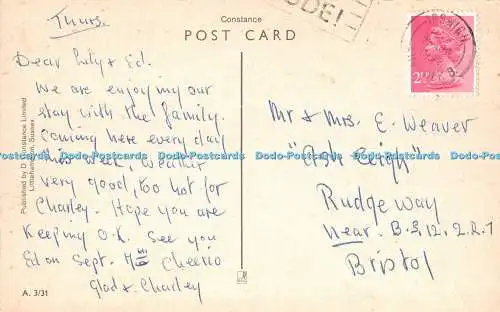 Thurs.
Constance
POST CARD
ODE!
2½P
Dear Lily & Ed.
We are enjoying our
stay with the family.
Coming here every day
this week, weather
very good, too hot for
Charley. Hope you are
Keeping O.K. See you
Ed on Sept. Cheerio
Glad & Charley
A. 3/31
Published by D. Constance Limited
Littlehampton, Sussex
Mr & Mrs. E. Weaver
"Ash Leigh"
Rudgeway
Near. B.S.12.2.R.T
Bristol
Dodo Postcards Dodo Postcards Dodo Postcards Dodo Postcards Dodo Postcards